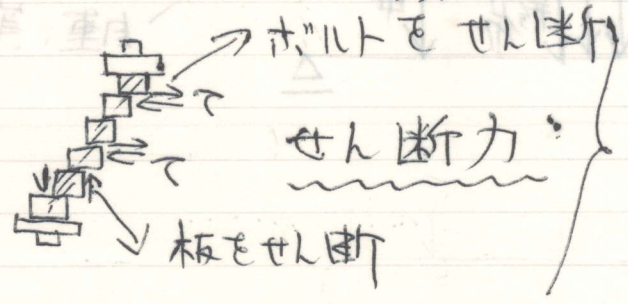 ボルトを せん断
τ
せん断力
τ
板をせん断